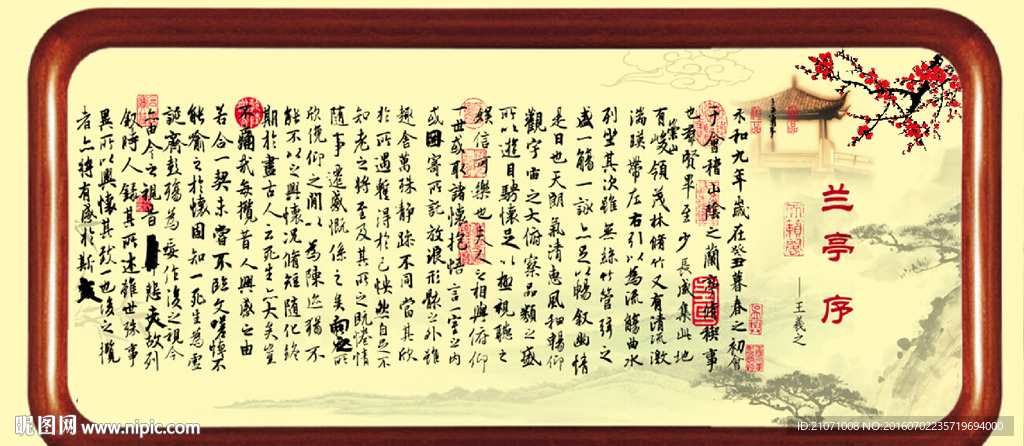 兰亭序
——王羲之
永和九年歲在癸丑暮春之初會
于會稽山陰之蘭亭脩稧事
也羣賢畢至少長咸集此地
有崇山峻領茂林脩竹又有清流激
湍暎帶左右引以為流觴曲水
列坐其次雖無絲竹管弦之
盛一觴一詠亦足以暢敘幽情
是日也天朗氣清惠風和暢仰
觀宇宙之大俯察品類之盛
所以遊目騁懷足以極視聽之
娛信可樂也夫人之相與俯仰
一世或取諸懷抱悟言一室之內
或因寄所託放浪形骸之外雖
趣舍萬殊靜躁不同當其欣
於所遇暫得於己怏然自足不
知老之將至及其所之既惓情
隨事遷感慨係之矣向之所
欣俛仰之閒以為陳迹猶不
能不以之興懷況脩短隨化終
期於盡古人云死生亦大矣豈
不痛哉每攬昔人興感之由
若合一契未嘗不臨文嗟悼不
能喻之於懷固知一死生為虛
誕齊彭殤為妄作後之視今
亦由今之視昔悲夫故列
敘時人錄其所述雖世殊事
異所以興懷其致一也後之攬
者亦將有感於斯文
昵图网 www.nipic.com
ID:21071008 NO:20160702235719694000